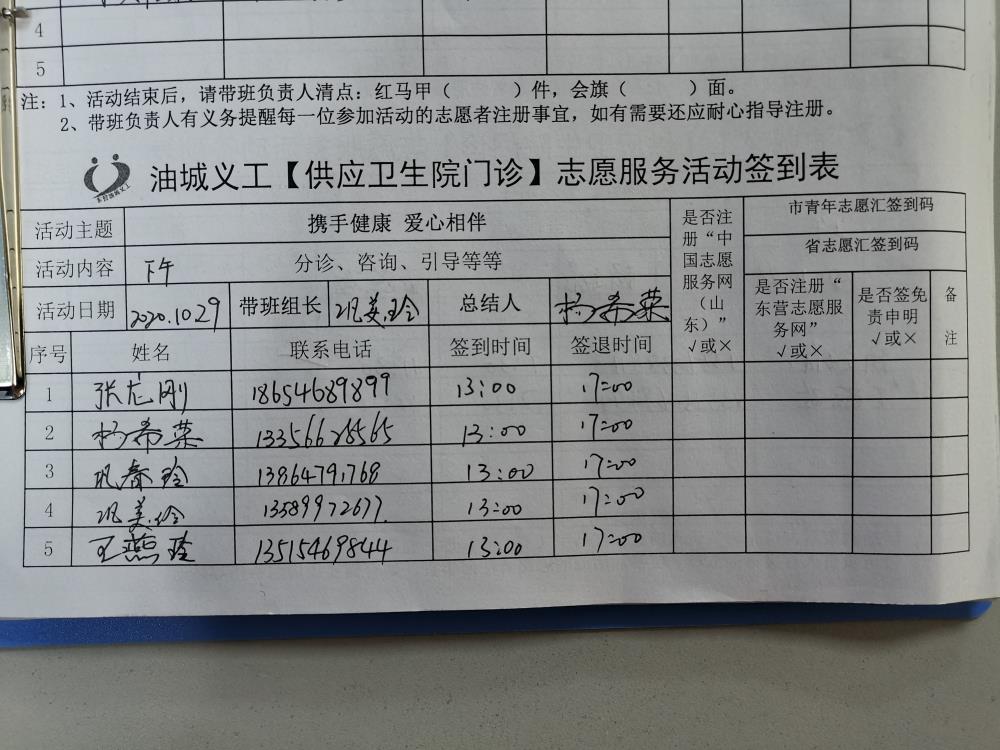 4
5
注：1、活动结束后，请带班负责人清点：红马甲（　　）件，会旗（　　）面。
2、带班负责人有义务提醒每一位参加活动的志愿者注册事宜，如有需要还应耐心指导注册。
油城义工【供应卫生院门诊】志愿服务活动签到表
活动主题 携手健康 爱心相伴 是否注册“中国志愿服务网（山东）”√或× 市青年志愿汇签到码
活动内容 下午 分诊、咨询、引导等等 省志愿汇签到码
活动日期 2020.10.29 带班组长 巩美玲 总结人 杨希菜 是否注册“东营志愿服务网”√或× 是否签免责申明√或× 备注
序号 姓名 联系电话 签到时间 签退时间
1 张龙刚 18654689899 13:00 17:00
2 杨希菜 13356628565 13:00 17:00
3 巩春玲 13864791768 13:00 17:00
4 巩美玲 13589972677 13:00 17:00
5 王燕 13515469844 13:00 17:00